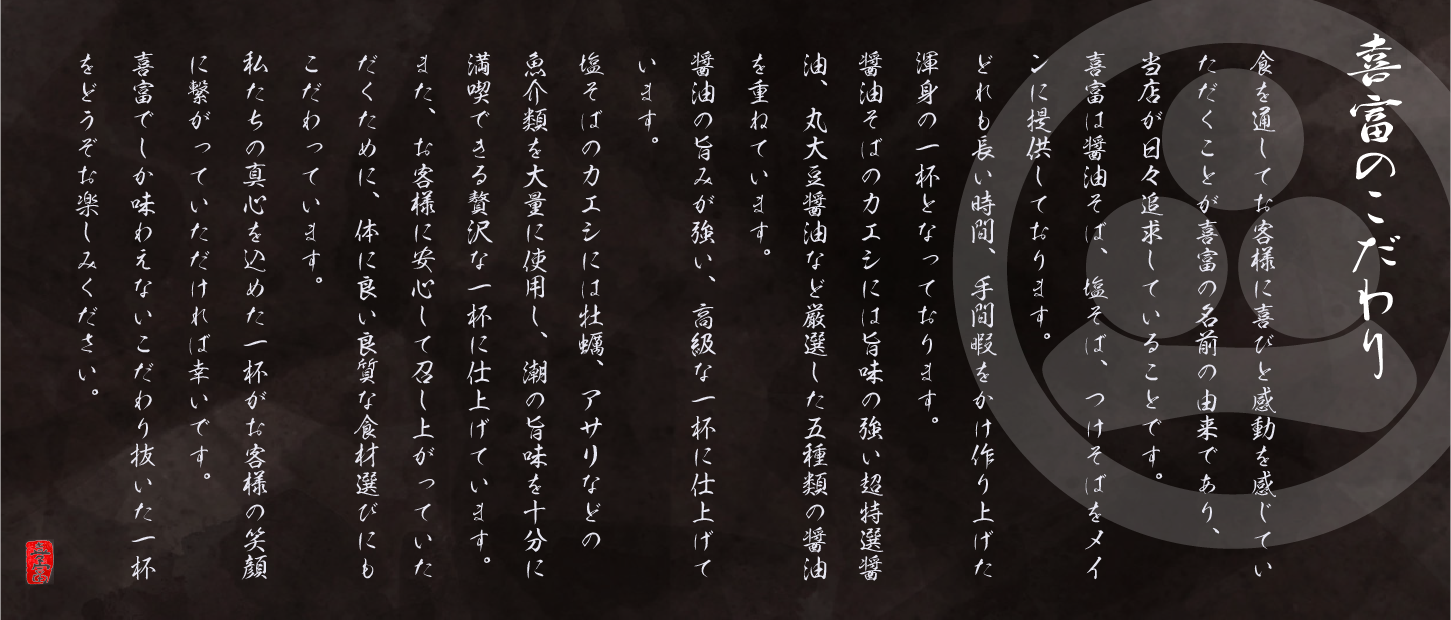 喜富のこだわり
食を通してお客様に喜びと感動を感じてい
ただくことが喜富の名前の由来であり、
当店が日々追求していることです。
喜富は醤油そば、塩そば、つけそばをメイ
ンに提供しております。
どれも長い時間、手間暇をかけ作り上げた
渾身の一杯となっております。
醤油そばのカエシには旨味の強い超特選醤
油、丸大豆醤油など厳選した五種類の醤油
を重ねています。
醤油の旨みが強い、高級な一杯に仕上げて
います。
塩そばのカエシには牡蠣、アサリなどの
魚介類を大量に使用し、潮の旨味を十分に
満喫できる贅沢な一杯に仕上げています。
また、お客様に安心して召し上がっていた
だくために、体に良い良質な食材選びにも
こだわっています。
私たちの真心を込めた一杯がお客様の笑顔
に繋がっていただければ幸いです。
喜富でしか味わえないこだわり抜いた一杯
をどうぞお楽しみください。